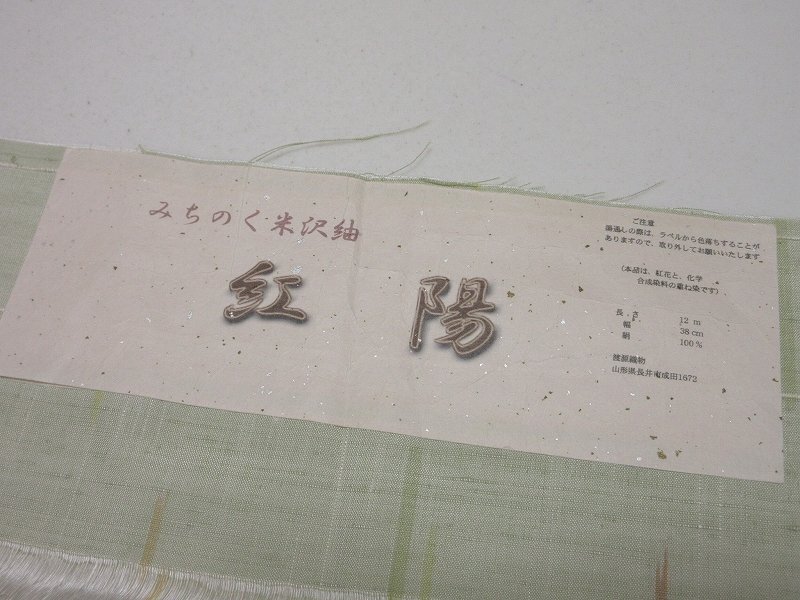 みちのく米沢紬
紅陽
ご注意
湯通しの際は、ラベルから色落ちすることが
ありますので、取り外してお願いいたします
(本品は、紅花と、化学
合成染料の重ね染です)
長さ 12 m
幅 38 cm
絹 100%
渡源織物
山形県長井市成田1672